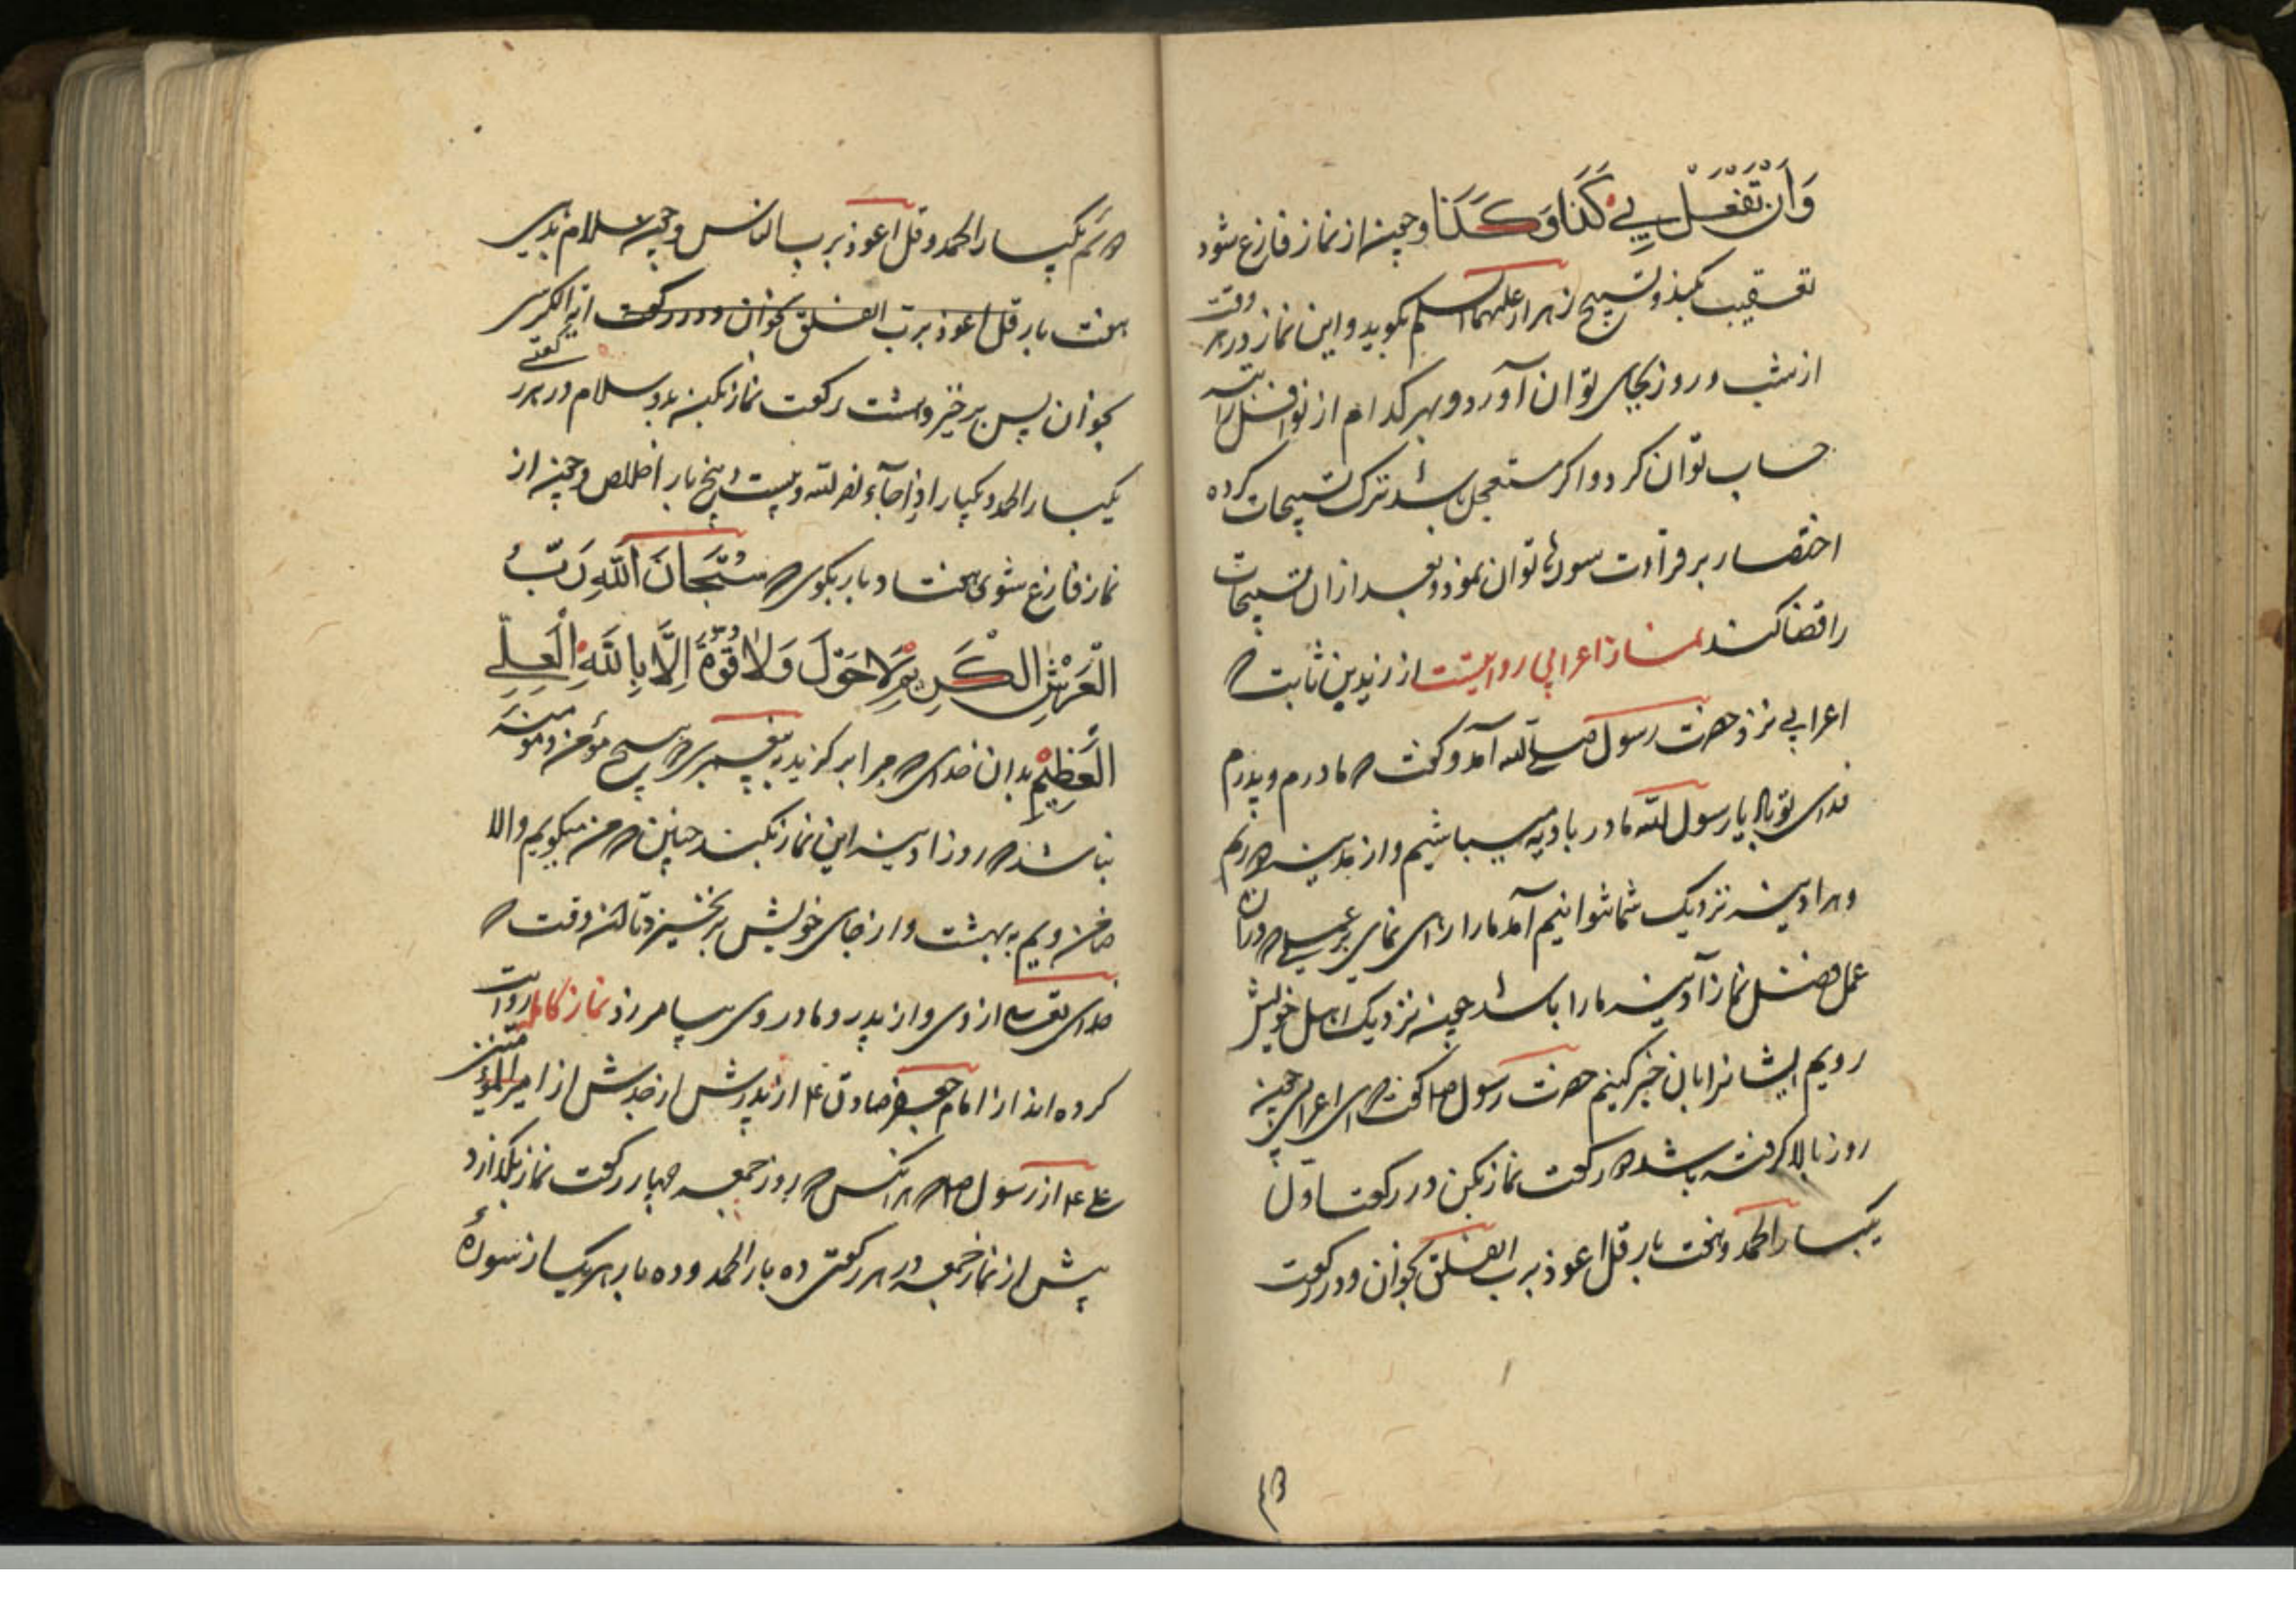 وَأَنْ تَفْعَلَ بِي كَذَا وَكَذَا و چون از نماز فارغ شود
تعقیب بکند و تسبیح زهرا علیهما السلم بکوید و این نماز در هر وقت
از شب و روز بجای توان آورد و بهر کدام از نوافل راتبه
حساب توان کرد و اکر مستعجل باشد ترک تسبیحات کرده
اختصار بر قرائت سورها توان نمود و بعد از ان تسبیحات
را قضا کند نماز اعرابی روایتست از زید بن ثابت که
اعرابی نزد حضرت رسول صلی الله آمد و کفت که مادرم و پدرم
فدای تو باد یا رسول الله ما در بادیه میباشیم و از مدینه دوریم
و هر ادینه نزدیک شما نتوانیم آمد ما را راه نمای بر عملی که در آن
عمل فضل نماز آدینه ما را باشد چون نزدیک اهل خویش
رویم ایشانرا بان خبر کنیم حضرت رسول ص کفت که ای اعرابی چون
روز بالا کرفته باشد دو رکعت نماز بکن در رکعت اول
یکبار الحمد و هفت بار قل اعوذ برب الفلق بخوان و در رکعت
دوم یکبار الحمد و قل اعوذ برب الناس و چون سلام بدهی
هفت بار قل اعوذ برب الفلق بخوان و در رکعت ایة الکرسی
بخوان پس برخیز و هشت رکعت نماز بکن بدو سلام در هر رکعتی
یکبار الحمد و یکبار اذا جآء نصر الله و بیست و پنج بار اخلاص و چون از
نماز فارغ شوی هفتاد بار بکوی که سُبْحَانَ اللهِ رَبِّ
الْعَرْشِ الْكَرِيمِ لَا حَوْلَ وَلَا قُوَّةَ إِلَّا بِاللهِ الْعَلِيِّ
الْعَظِيمِ بدان خدای که مرا برکزید به پیغمبری که هیچ مؤمن و مؤمنه
نباشد که روز ادینه این نماز بکند چنین که من میکویم و الا
ضامن ویم به بهشت و از جای خویش برنخیزد تا انوقت که
خدای تعالی از وی و از پدر و مادر وی بیامرزد نماز کامله روایت
کرده اند از امام جعفر صادق ع از پدرش از جدش از امیر المؤمنین
علی ع از رسول ص که هر انکس که روز جمعه چهار رکعت نماز بکذارد
پیش از نماز جمعه در هر رکعتی ده بار الحمد و ده بار هر یک از سورۀ